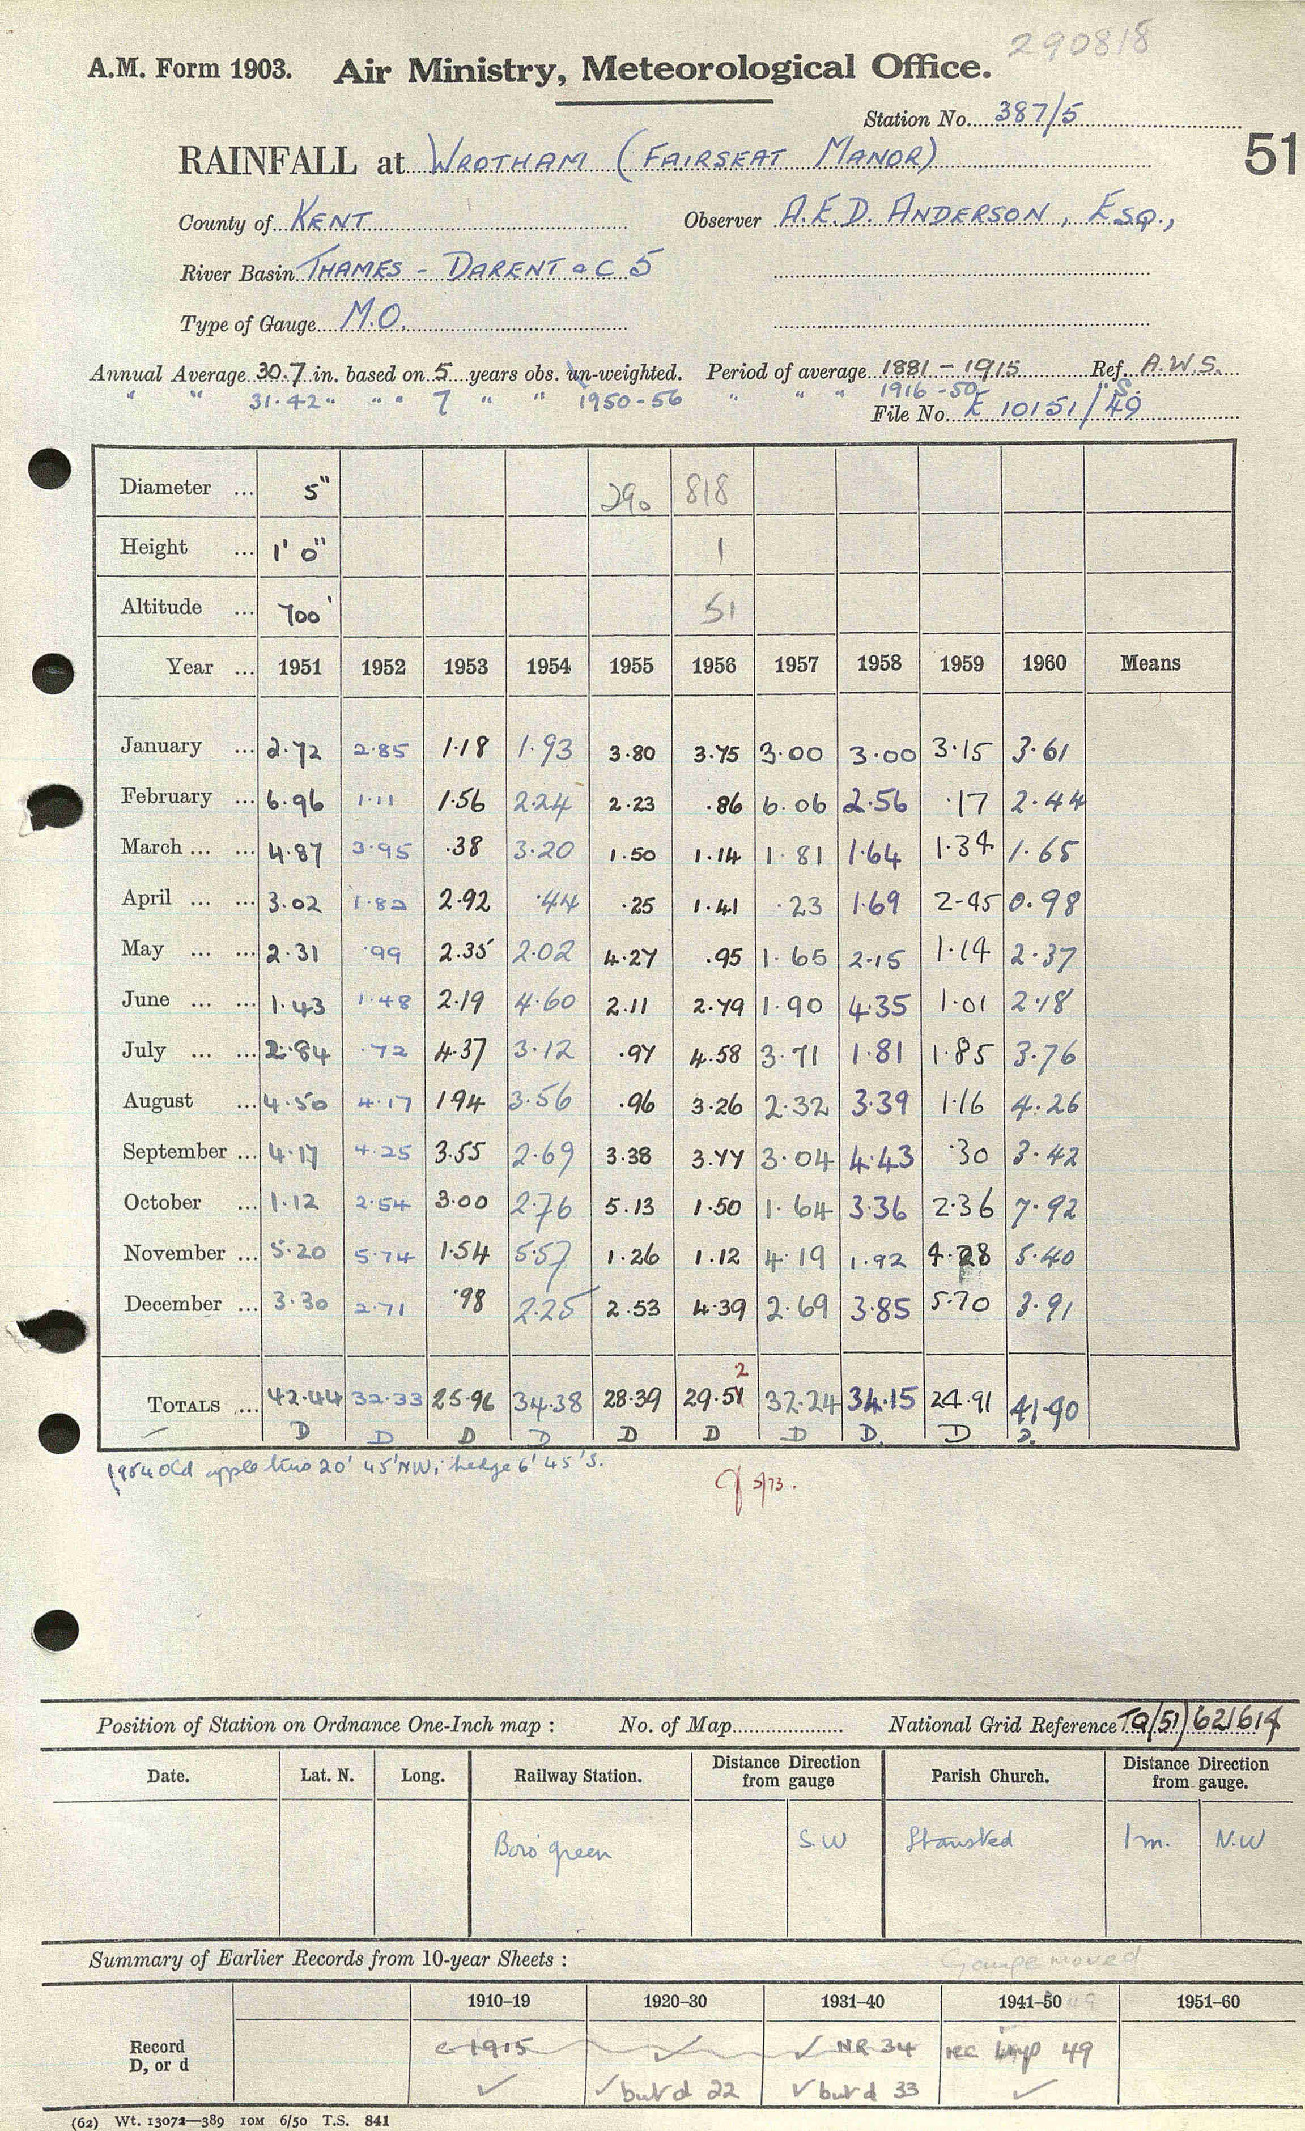 290818
A.M. Form 1903. Air Ministry, Meteorological Office.
Station No. 387/5
51
RAINFALL at WROTHAM (FAIRSEAT MANOR)
County of KENT Observer A.E.D. ANDERSON, ESQ.,
River Basin THAMES - DARENT & C 5
Type of Gauge M.O.
Annual Average 30.7 in. based on 5 years obs. un-weighted. Period of average 1881-1915 Ref. A.W.S.
" " 31.42 " " " 7 " " 1950-56 " " " 1916-50 " S.
File No. E 10151/49
Diameter ... 5" 290 818
Height ... 1' 0" 1
Altitude ... 700' 51
Year ... 1951 1952 1953 1954 1955 1956 1957 1958 1959 1960 Means
January ... 2.72 2.85 1.18 1.93 3.80 3.75 3.00 3.00 3.15 3.61
February ... 6.96 1.11 1.56 2.24 2.23 .86 6.06 2.56 .17 2.44
March ... ... 4.87 3.95 .38 3.20 1.50 1.14 1.81 1.64 1.34 1.65
April ... ... 3.02 1.82 2.92 .44 .25 1.41 .23 1.69 2.45 0.98
May ... ... 2.31 .99 2.35 2.02 4.27 .95 1.65 2.15 1.14 2.37
June ... ... 1.43 1.48 2.19 4.60 2.11 2.79 1.90 4.35 1.01 2.18
July ... ... 2.84 .72 4.37 3.12 .97 4.58 3.71 1.81 1.85 3.76
August ... 4.50 4.17 1.94 3.56 .96 3.26 2.32 3.39 1.16 4.26
September ... 4.17 4.25 3.55 2.69 3.38 3.77 3.04 4.43 .30 3.42
October ... 1.12 2.54 3.00 2.76 5.13 1.50 1.64 3.36 2.36 7.92
November ... 5.20 5.74 1.54 5.57 1.26 1.12 4.19 1.92 4.28 5.40
December ... 3.30 2.71 .98 2.25 2.53 4.39 2.69 3.85 5.70 3.91
2
TOTALS ... 42.44 32.33 25.96 34.38 28.39 29.51 32.24 34.15 24.91 41.90
D D D D D D D D. D D.
1954 Old apple tree 20' 45' NW; hedge 6' 45' S.
5/73.
Position of Station on Ordnance One-Inch map : No. of Map National Grid Reference TQ/(51) 621614
Date. Lat. N. Long. Railway Station. Distance Direction from gauge Parish Church. Distance Direction from gauge.
Boro' green S.W Stansted 1m. N.W
Summary of Earlier Records from 10-year Sheets : Gauge moved
1910-19 1920-30 1931-40 1941-50 49 1951-60
Record D, or d
c 1915 ✓ ✓ NR 34 rec 49
✓ ✓ but d 22 ✓ but d 33 ✓
(62) Wt. 13072—389 10M 6/50 T.S. 841